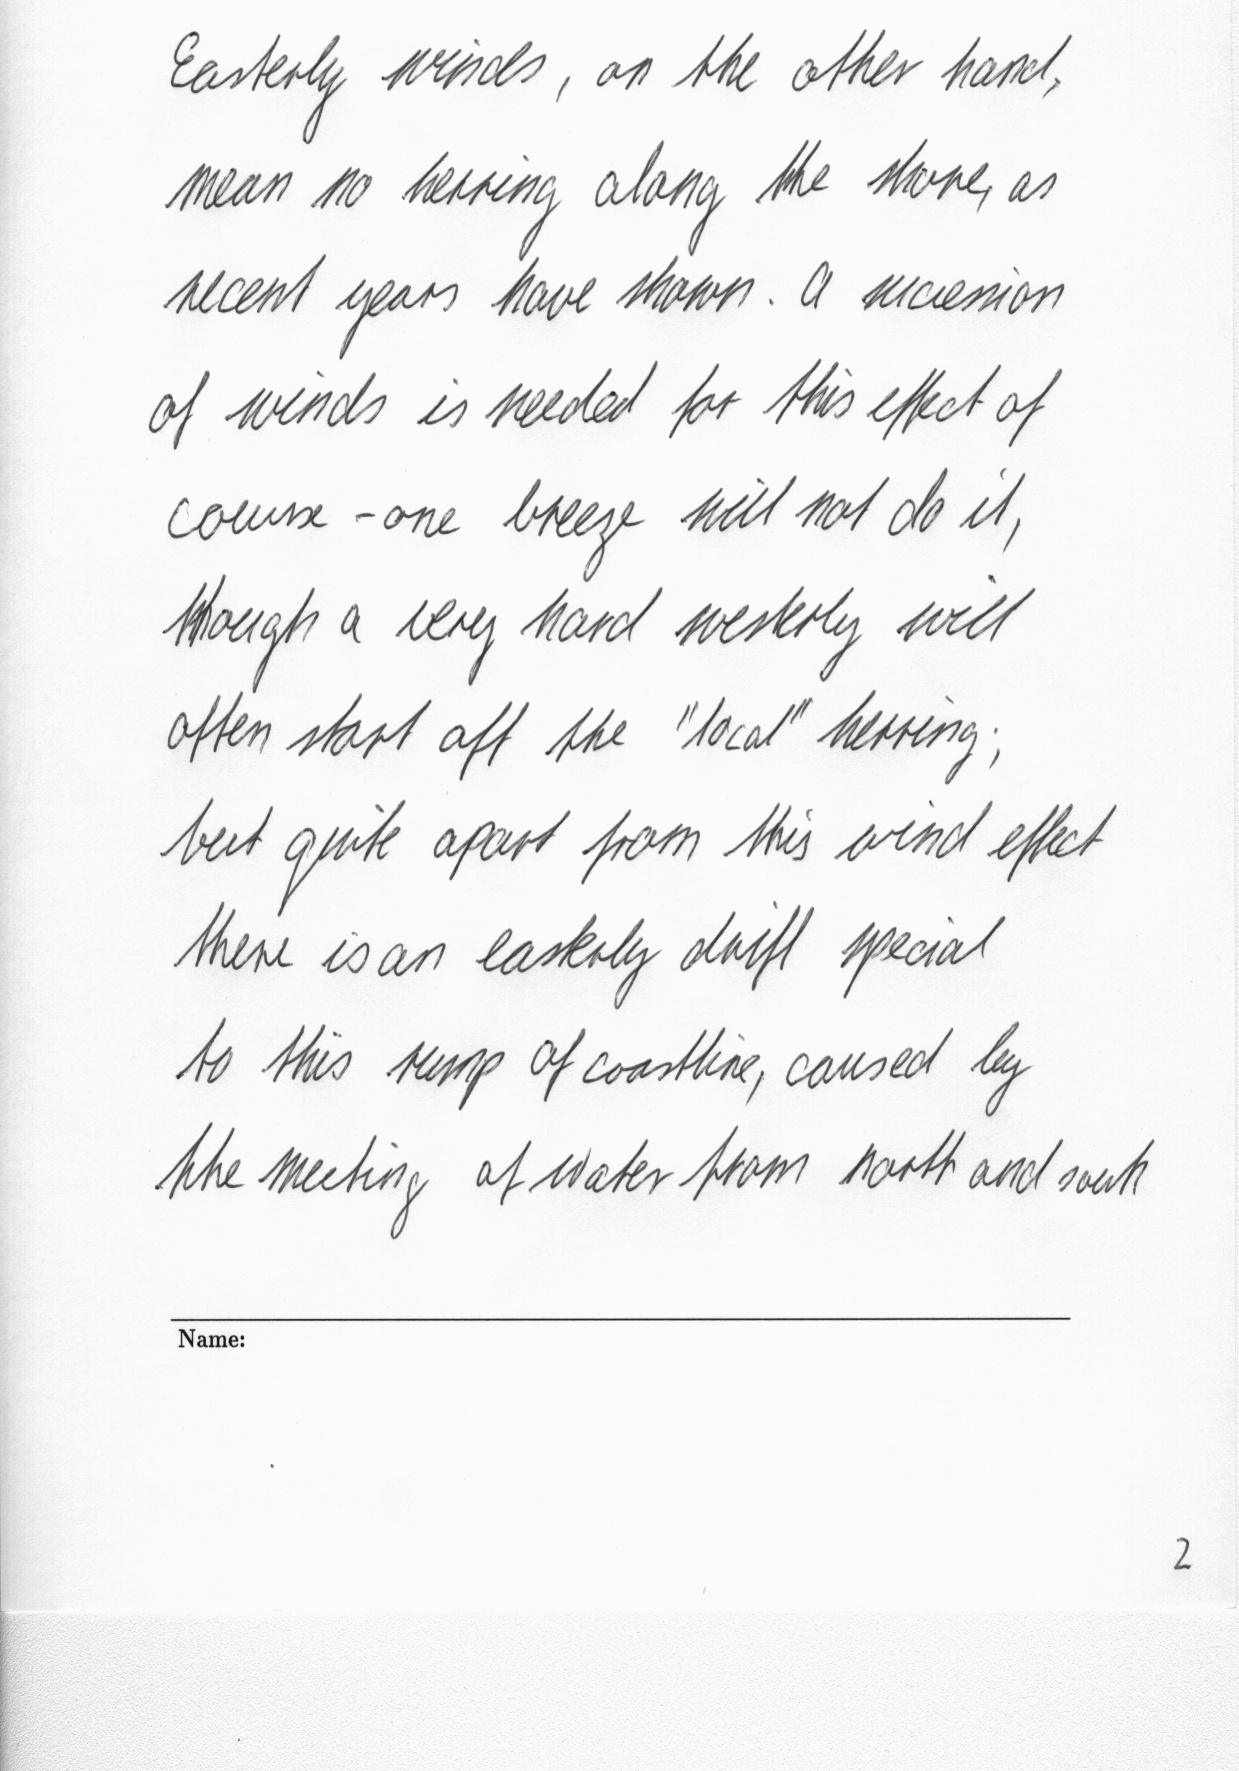 Easterly winds, on the other hand,
mean no herring along the shore, as
recent years have shown. A succession
of winds is needed for this effect of
course - one breeze will not do it,
though a very hard westerly will
often start off the "local" herring;
but quite apart from this wind effect
there is an easterly drift special
to this rump of coastline, caused by
the meeting of water from north and south
Name:
2